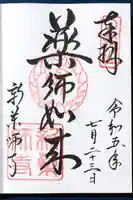 奉拝
令和五年
七月二十三日
薬師如来
新薬師寺